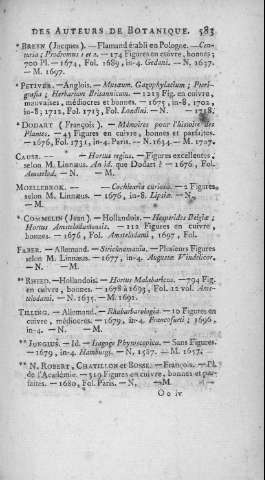 DES AUTEURS DE BOTANIQUE. 583
* BREYN (Jacques). — Flamand établi en Pologne. — Cen-
turia ; Prodromus 1 et 2. — 174 Figures en cuivre, bonnes ;
700 Pl. — 1674, Fol. 1689, in-4. Gedani. — N. 1637.
— M. 1697.
* PETIVER. — Anglois. — Musæum, Gazophylacium ; Pteri-
grafia ; Herbarium Britannicum. — 1213 Fig. en cuivre,
mauvaises, médiocres et bonnes. — 1675, in-8, 1702,
in-8, 1712, Fol. 1713, Fol. Londini. — N. — 1718.
* DODART (François). — Mémoires pour l'histoire des
Plantes. — 43 Figures en cuivre, bonnes et parfaites.
— 1676, Fol. 1731, in-4. Paris. — N. 1634. — M. 1707.
CAUSE. — — Hortus regius. — Figures excellentes,
selon M. Linnæus. An id. que Dodart ? — 1676, Fol.
Amstelod. — N. — M.
MOELLEBROK. — — Cochlearia curiosa. — 2 Figures,
selon M. Linnæus. — 1676, in-8. Lipsiæ. — N.
— M.
* COMMELIN (Jean). — Hollandois. — Hesperides Belgiæ ;
Hortus Amstelodamensis. — 112 Figures en cuivre,
bonnes. — 1676, Fol. Amstelodami, 1697, Fol.
FABER. — Allemand. — Strichnomania. — Plusieurs Figures
selon M. Linnæus. — 1677, in-4. Augustæ Vindelicor.
— N. — M.
** RHEED. — Hollandois. — Hortus Malabaricus. — 794 Fig.
en cuivre, bonnes. — 1678 à 1693, Fol. 12 vol. Ams-
telodami, — N. 1635. — M. 1691.
TILLING. — Allemand. — Rhabarbarologia. — 10 Figures en
cuivre, médiocres. — 1679, in-4. Francofurti ; 1696,
in-4. — N. — M.
** JUNGIUS. — Id. — Isagoge Phytoscopica. — Sans Figures.
— 1679, in-4. Hamburgi. — N. 1587. — M. 1657.
** N. ROBERT, CHATILLON et BOSSE. — François. — Pl.
de l'Académie. — 319 Figures en cuivre, bonnes et par-
faites. — 1680, Fol. Paris. — N. — M.
Oo iv